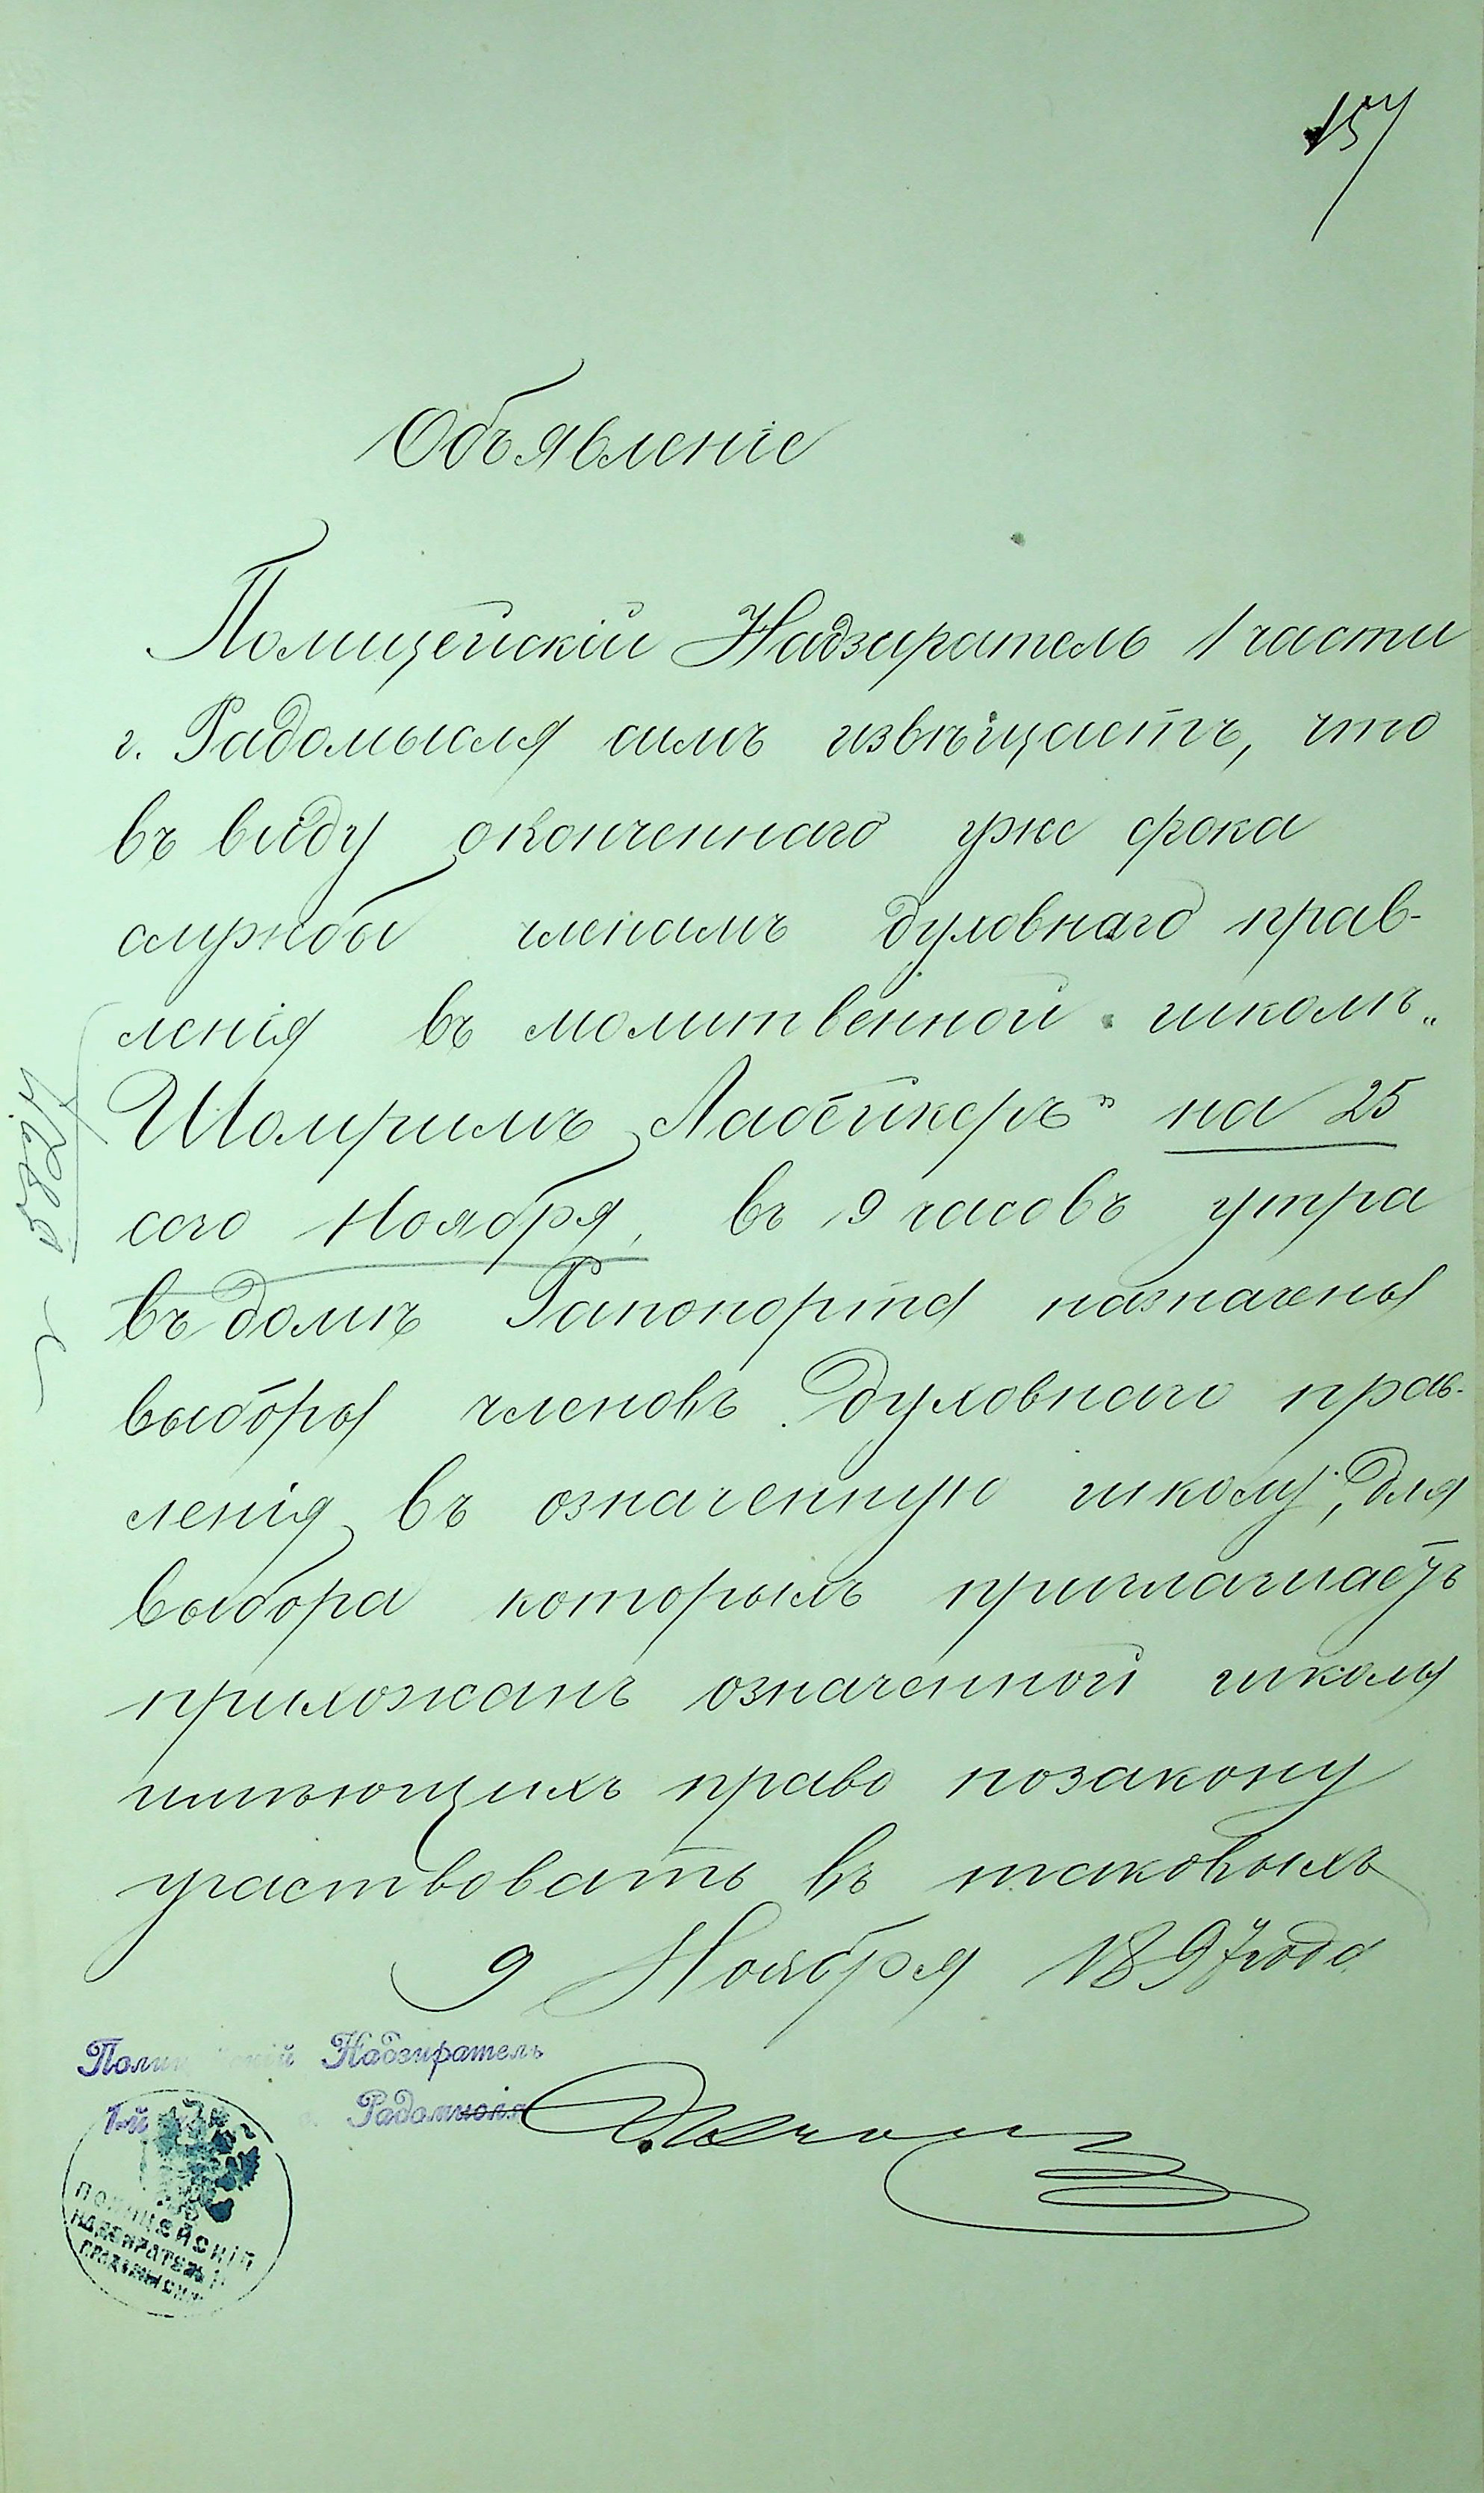 157
Объявленіе
Полицейскій Надзиратель 1 части
г. Радомысля симъ извѣщаетъ, что
въ виду оконченнаго уже срока
службы членамъ духовнаго прав-
ленія въ молитвенной школѣ „
Шомримъ Лабейкеръ" на 25
сего Ноября, въ 9 часовъ утра
въ домѣ Рапопорта назначены
выборы членовъ духовнаго прав-
ленія въ означенную школу, для
выбора которыхъ приглашаютъ
прихожанъ означенной школы
имѣющихъ право позакону
участвовать въ таковыхъ
9 Ноября 1897 года
Полицейскій Надзиратель
1-й г. Радомысля
ПОЛИЦЕЙСКІЙ
НАДЗИРАТЕЛЬ